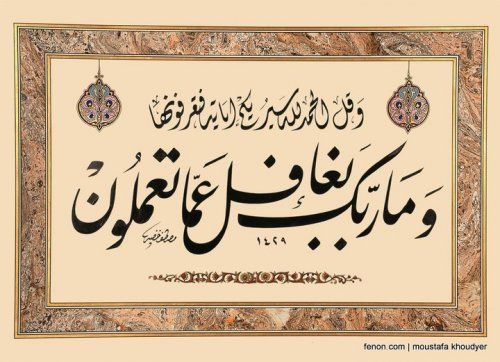 وقل الحمد لله سيريكم اياته فتعرفونها
وما ربك بغافل عما تعملون
١٤٢٩ مصطفى خضير
fenon.com | moustafa khoudyer